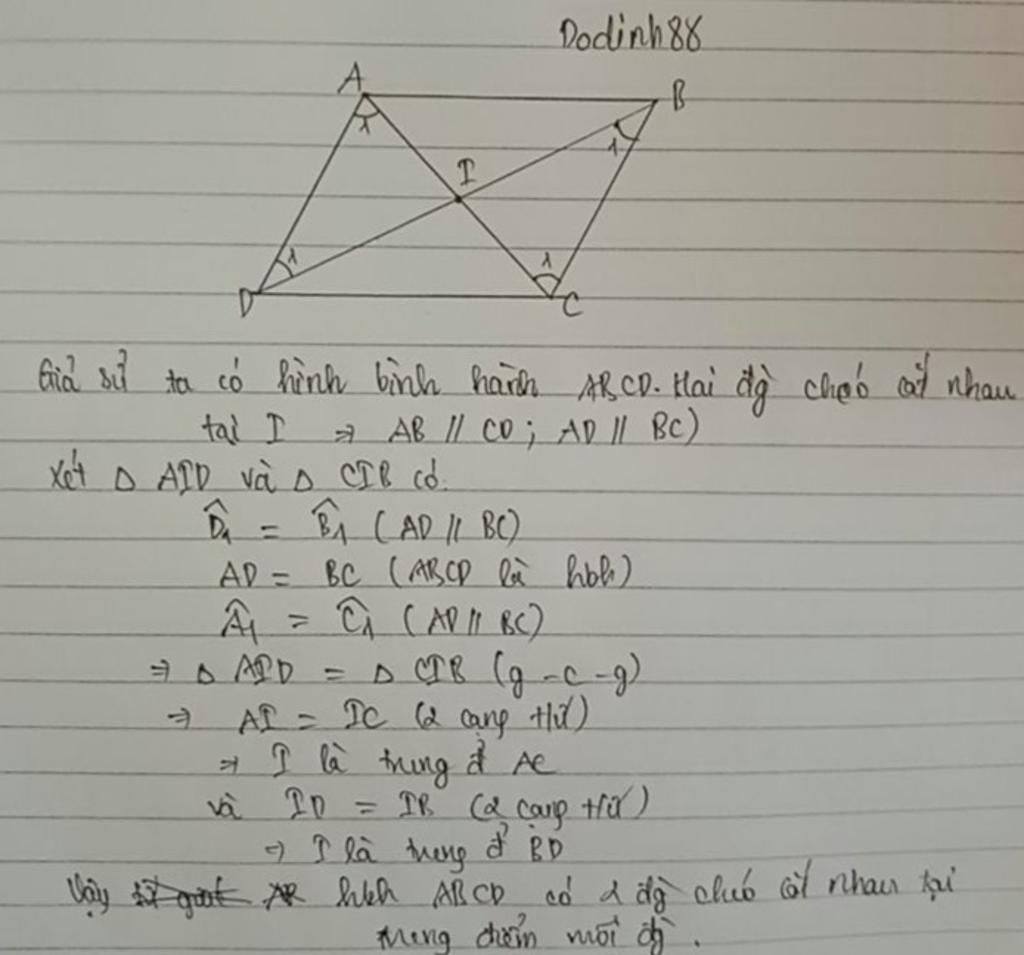 Dodinh88
A
B
1
1
I
1
1
D
C
Giả sử ta có hình bình hành ABCD. Hai đg̀ chéo cắt nhau
tại I ⇒ AB // CD ; AD // BC)
Xét △ AID và △ CIB có.
D̂₁ = B̂₁ (AD // BC)
AD = BC (ABCD là hbh)
Â₁ = Ĉ₁ (AD // BC)
⇒ △ AID = △ CIB (g - c - g)
⇒ AI = IC (2 cạng tứ)
⇒ I là trung đ̉ AC
và ID = IB (2 cạng tứ)
⇒ I là trung đ̉ BD
Vậy hbh ABCD có 2 đg̀ chéo cắt nhau tại
trung điểm mỗi đg̀.